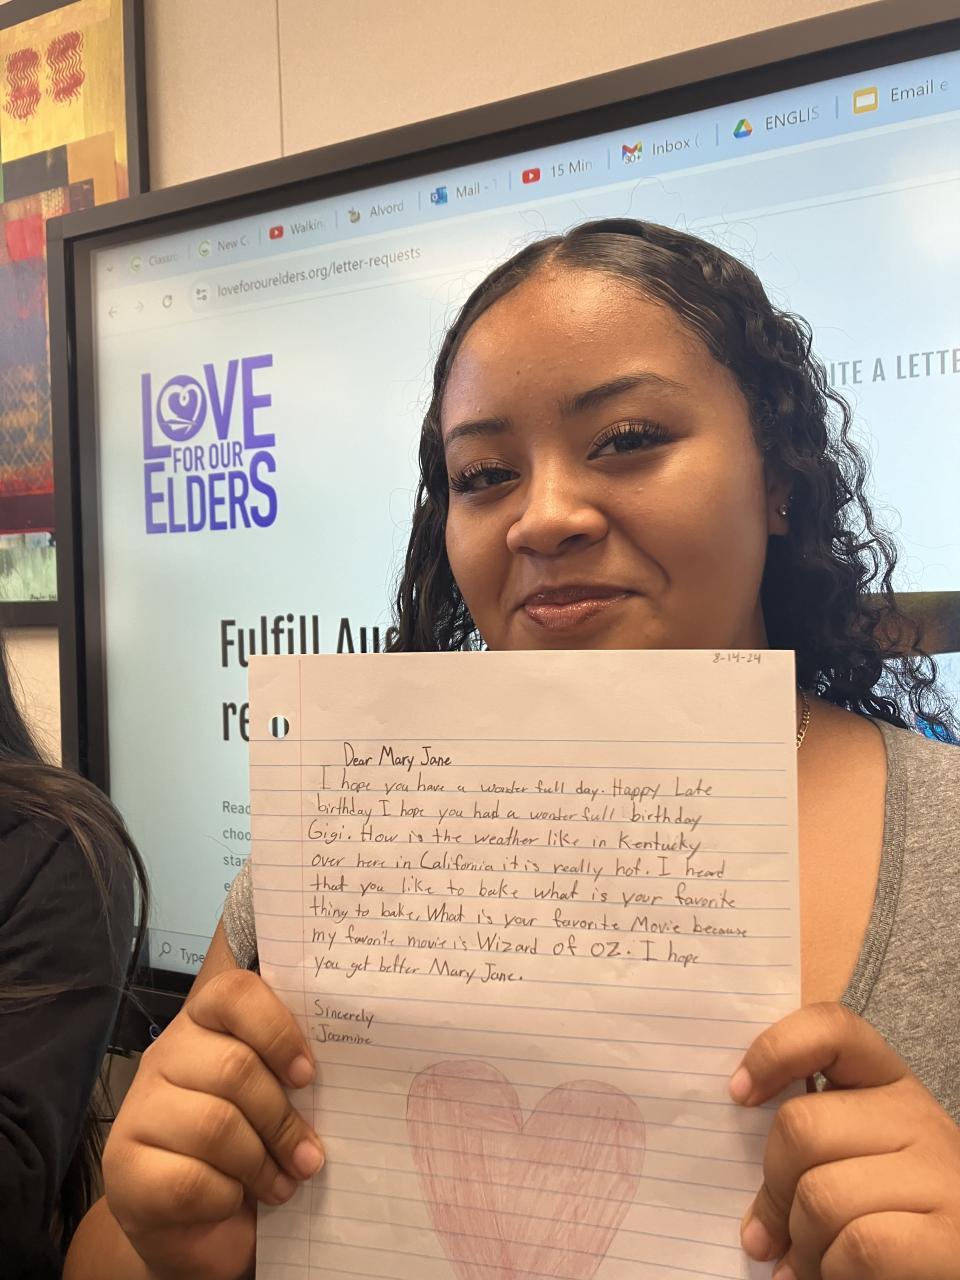 Classro
New C
Walkin
Alvord
Mail - T
15 Min
Inbox (
ENGLIS
Email e
loveforourelders.org/letter-requests
LOVE
FOR OUR
ELDERS
ITE A LETTE
Fulfill Aug
re
Read
choo
star
e
Type
8-14-24
Dear Mary Jane
I hope you have a wonder full day. Happy Late
birthday I hope you had a wonder full birthday
Gigi. How is the weather like in Kentucky
over here in California it is really hot. I heard
that you like to bake what is your favorite
thing to bake. What is your favorite Movie because
my favorite movie is Wizard of OZ. I hope
you get better Mary Jane.
Sincerely
Jazmine